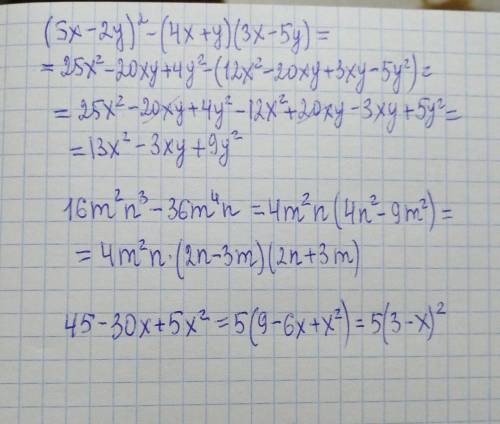 (5x-2y)²-(4x+y)(3x-5y)=
=25x²-20xy+4y²-(12x²-20xy+3xy-5y²)=
=25x²-20xy+4y²-12x²+20xy-3xy+5y²=
=13x²-3xy+9y²
16m²n³-36m⁴n=4m²n(4n²-9m²)=
=4m²n·(2n-3m)(2n+3m)
45-30x+5x²=5(9-6x+x²)=5(3-x)²